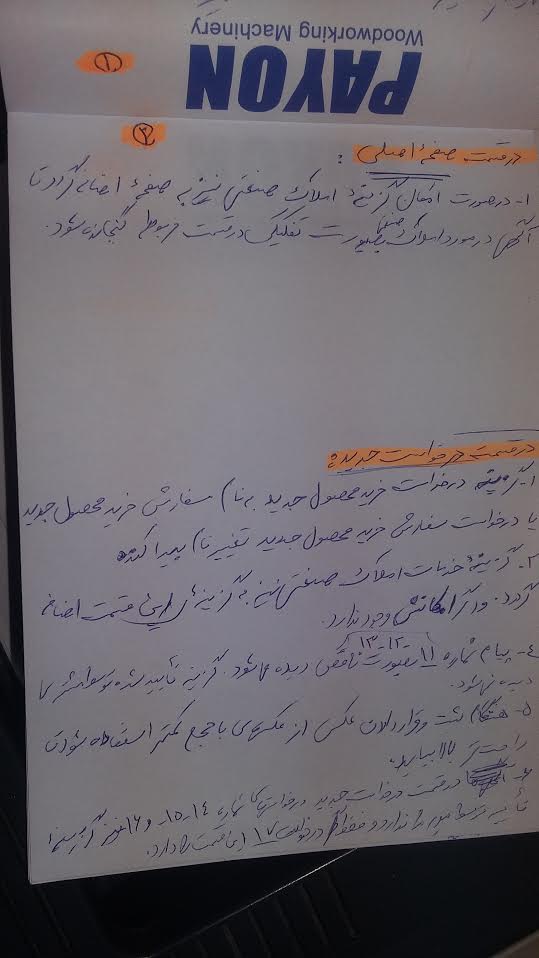 Woodworking Machinery
PAYON
۱
۲
در قسمت صفحهٔ اصلی :
۱- در صورت امکان گزینهٔ املاک صنعتی نیز به صفحهٔ اضافه گردد تا
آگهی در مورد املاک صنعتی بصورت تفکیک در قسمت مربوط گنجانده شود.
در قسمت درخواست جدید :
۱- گزینه درخواست خرید محصول جدید به نام سفارش خرید محصول جدید
یا درخواست سفارش خرید محصول جدید تغییر نام پیدا کند.
۳- گزینهٔ خدمات املاک صنعتی نیز به گزینه های این قسمت اضافه
گردد. و اگر امکانش وجود ندارد.
۴- پیام شماره ۱۱ ۱۲-۱۳ بصورت ناقص دیده میشود. گزینه تأیید شده توسط
دیده نمیشود.
۵- هنگام ثبت و قرار دادن عکس از عکسهای با حجم کمتر استفاده شود تا
راحت تر بالا بیاید.
۶- در قسمت درخواست جدید درخواستهای شماره ۱۴-۱۵- و ۱۶ نیز گزینه
تأیید توسط را ندارد و فقط درخواست ۱۷ این قسمت را دارد.